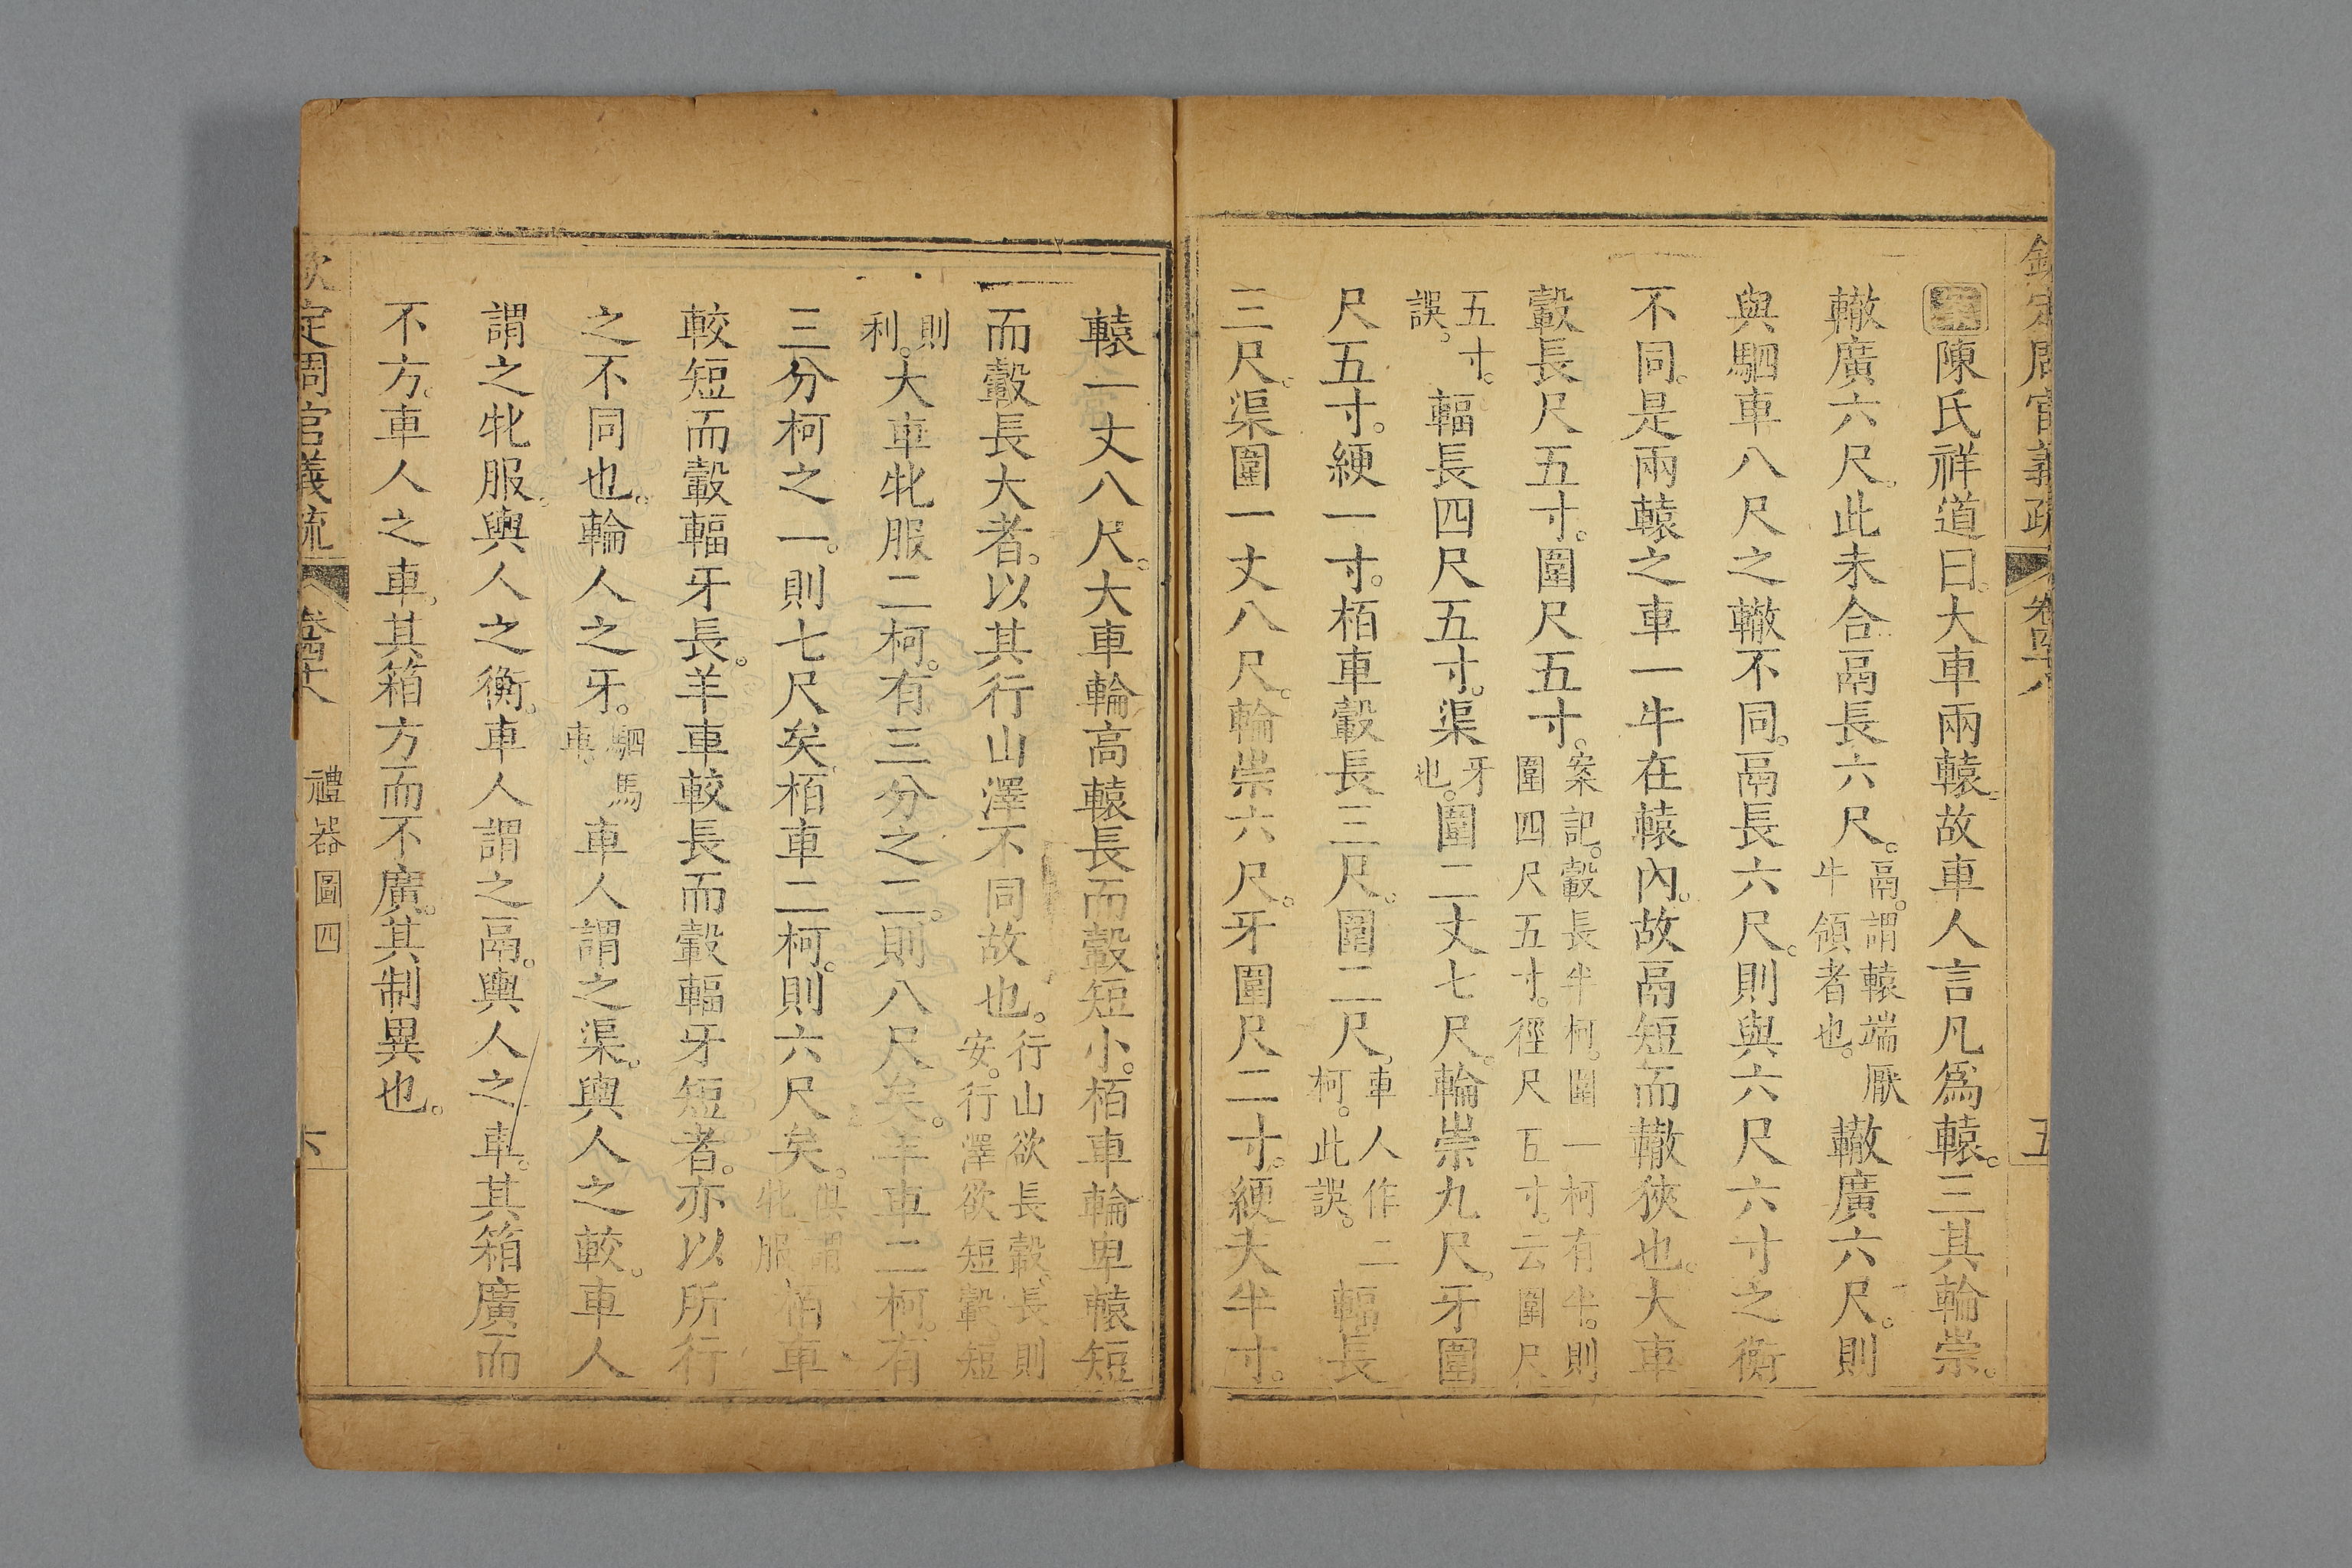 欽定周官義疏 卷四十八 五
案陳氏祥道曰。大車兩轅。故車人言凡爲轅。三其輪崇。
轍廣六尺。此未合鬲長六尺。鬲。謂轅端厭牛領者也。轍廣六尺。則
與駟車八尺之轍不同。鬲長六尺。則與六尺六寸之衡
不同。是兩轅之車一牛在轅內。故鬲短而轍狹也。大車
轂長尺五寸。圍尺五寸。案記。轂長半柯。圍一柯有半。則圍四尺五寸。徑尺五寸。云圍尺
五寸。誤。輻長四尺五寸。渠牙也。圍二丈七尺。輪崇九尺。牙圍
尺五寸。綆一寸。栢車轂長三尺。圍二尺。車人作二柯。此誤。輻長
三尺。渠圍一丈八尺。輪崇六尺。牙圍尺二寸。綆大半寸。
轅一丈八尺。大車輪高轅長而轂短小。栢車輪卑轅短
而轂長大者。以其行山澤不同故也。行山欲長轂。長則安。行澤欲短轂。短
則利。大車牝服二柯。有三分之二。則八尺矣。羊車二柯。有
三分柯之一。則七尺矣。栢車二柯。則六尺矣。俱謂牝服栢車
較短而轂輻牙長。羊車較長而轂輻牙短者。亦以所行
之不同也。輪人之牙。駟馬車。車人謂之渠。輿人之較。車人
謂之牝服。輿人之衡。車人謂之鬲。輿人之車。其箱廣而
不方。車人之車。其箱方而不廣。其制異也。
欽定周官義疏 卷四十八 禮器圖四 六